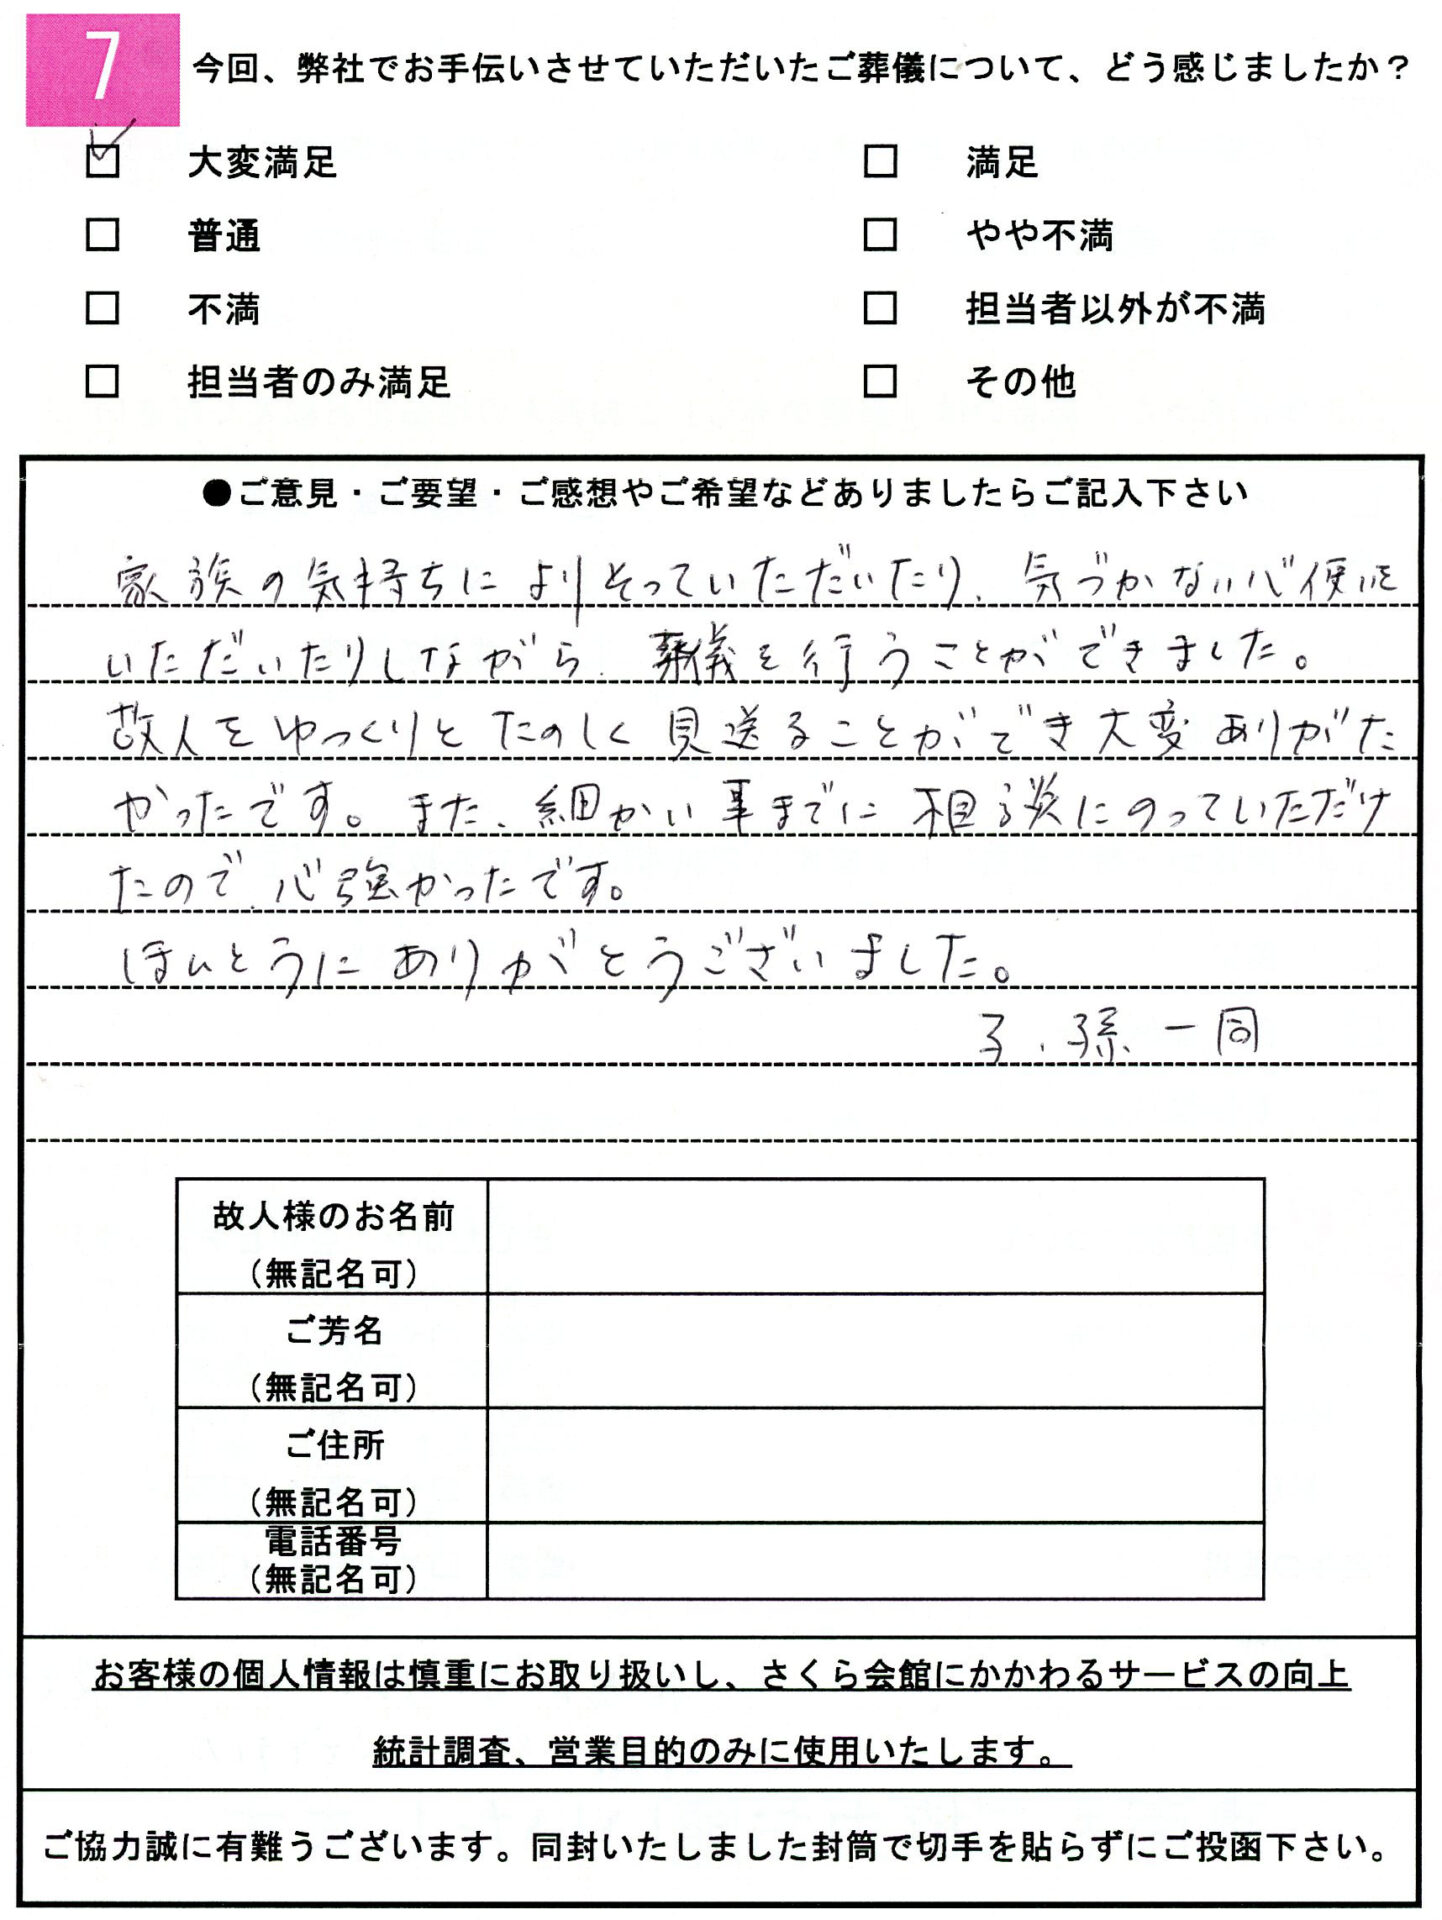 7
今回、弊社でお手伝いさせていただいたご葬儀について、どう感じましたか？
大変満足 満足
普通 やや不満
不満 担当者以外が不満
担当者のみ満足 その他
●ご意見・ご要望・ご感想やご希望などありましたらご記入下さい
家族の気持ちによりそっていただいたり、気づかない心
いただいたりしながら、葬儀を行うことができました。
故人をゆっくりとたのしく見送ることができ大変ありがた
かったです。また、細かい事までに相談にのっていただけ
たので、心強かったです。
ほんとうにありがとうございました。
子、孫一同
故人様のお名前
（無記名可）
ご芳名
（無記名可）
ご住所
（無記名可）
電話番号
（無記名可）
お客様の個人情報は慎重にお取り扱いし、さくら会館にかかわるサービスの向上
統計調査、営業目的のみに使用いたします。
ご協力誠に有難うございます。同封いたしました封筒で切手を貼らずにご投函下さい。